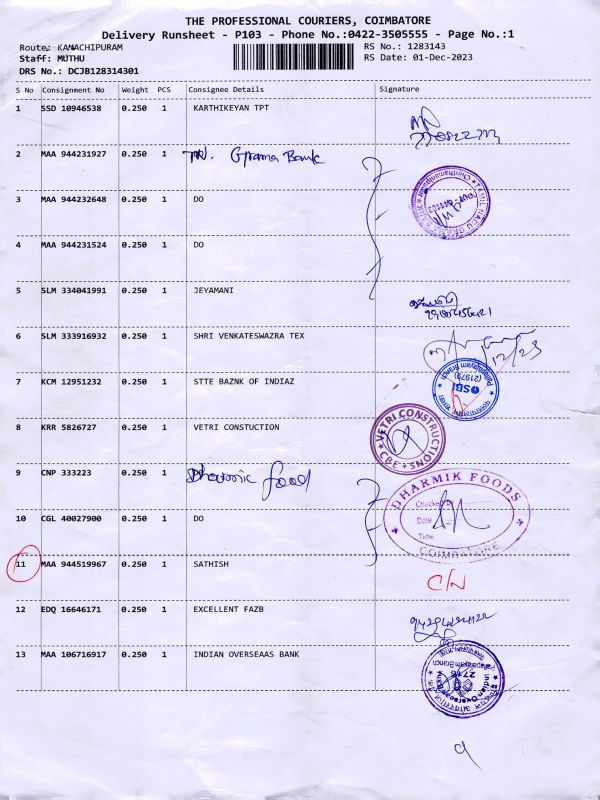 THE PROFESSIONAL COURIERS, COIMBATORE
Delivery Runsheet - P103 - Phone No.:0422-3505555 - Page No.:1
Route: KAMACHIPURAM RS No.: 1283143
Staff: MUTHU RS Date: 01-Dec-2023
DRS No.: DCJB128314301
S No Consignment No Weight PCS Consignee Details Signature
1 SSD 10946538 0.250 1 KARTHIKEYAN TPT
2 MAA 944231927 0.250 1 TN. Grama Bank
3 MAA 944232648 0.250 1 DO
4 MAA 944231524 0.250 1 DO
5 SLM 334041991 0.250 1 JEYAMANI
6 SLM 333916932 0.250 1 SHRI VENKATESWAZRA TEX
12/23
7 KCM 12951232 0.250 1 STTE BAZNK OF INDIAZ
SBI
(21979)
8 KRR 5826727 0.250 1 VETRI CONSTUCTION
VETRI CONSTRUCTIONS
CBE
9 CNP 333223 0.250 1 Dharmic food
DHARMIK FOODS
Checked
Date
Time
COIMBATORE
10 CGL 40027900 0.250 1 DO
11 MAA 944519967 0.250 1 SATHISH
C/N
12 EDQ 16646171 0.250 1 EXCELLENT FAZB
13 MAA 106716917 0.250 1 INDIAN OVERSEAAS BANK
2715
Indian Overseas
9